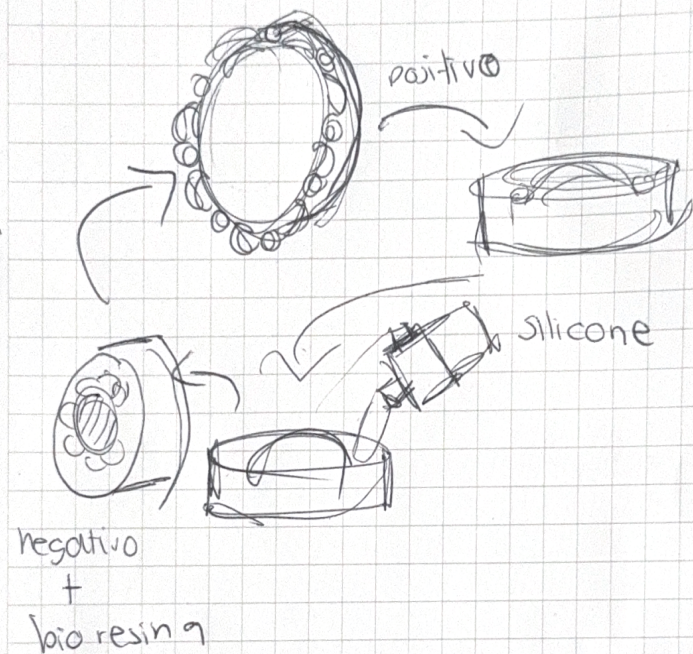 positivo
silicone
negativo
+
bio resina